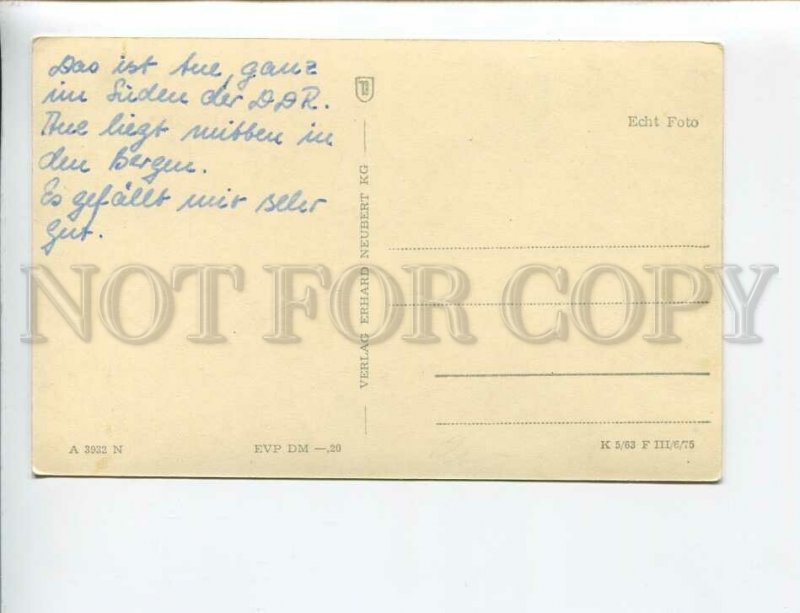 Das ist Aue, ganz
im Süden der DDR.
Aue liegt mitten in
den Bergen.
Es gefällt mir sehr
gut.
Echt Foto
VERLAG ERHARD NEUBERT KG
NOT FOR COPY
A 3932 N
EVP DM —,20
K 5/63 F III/6/75